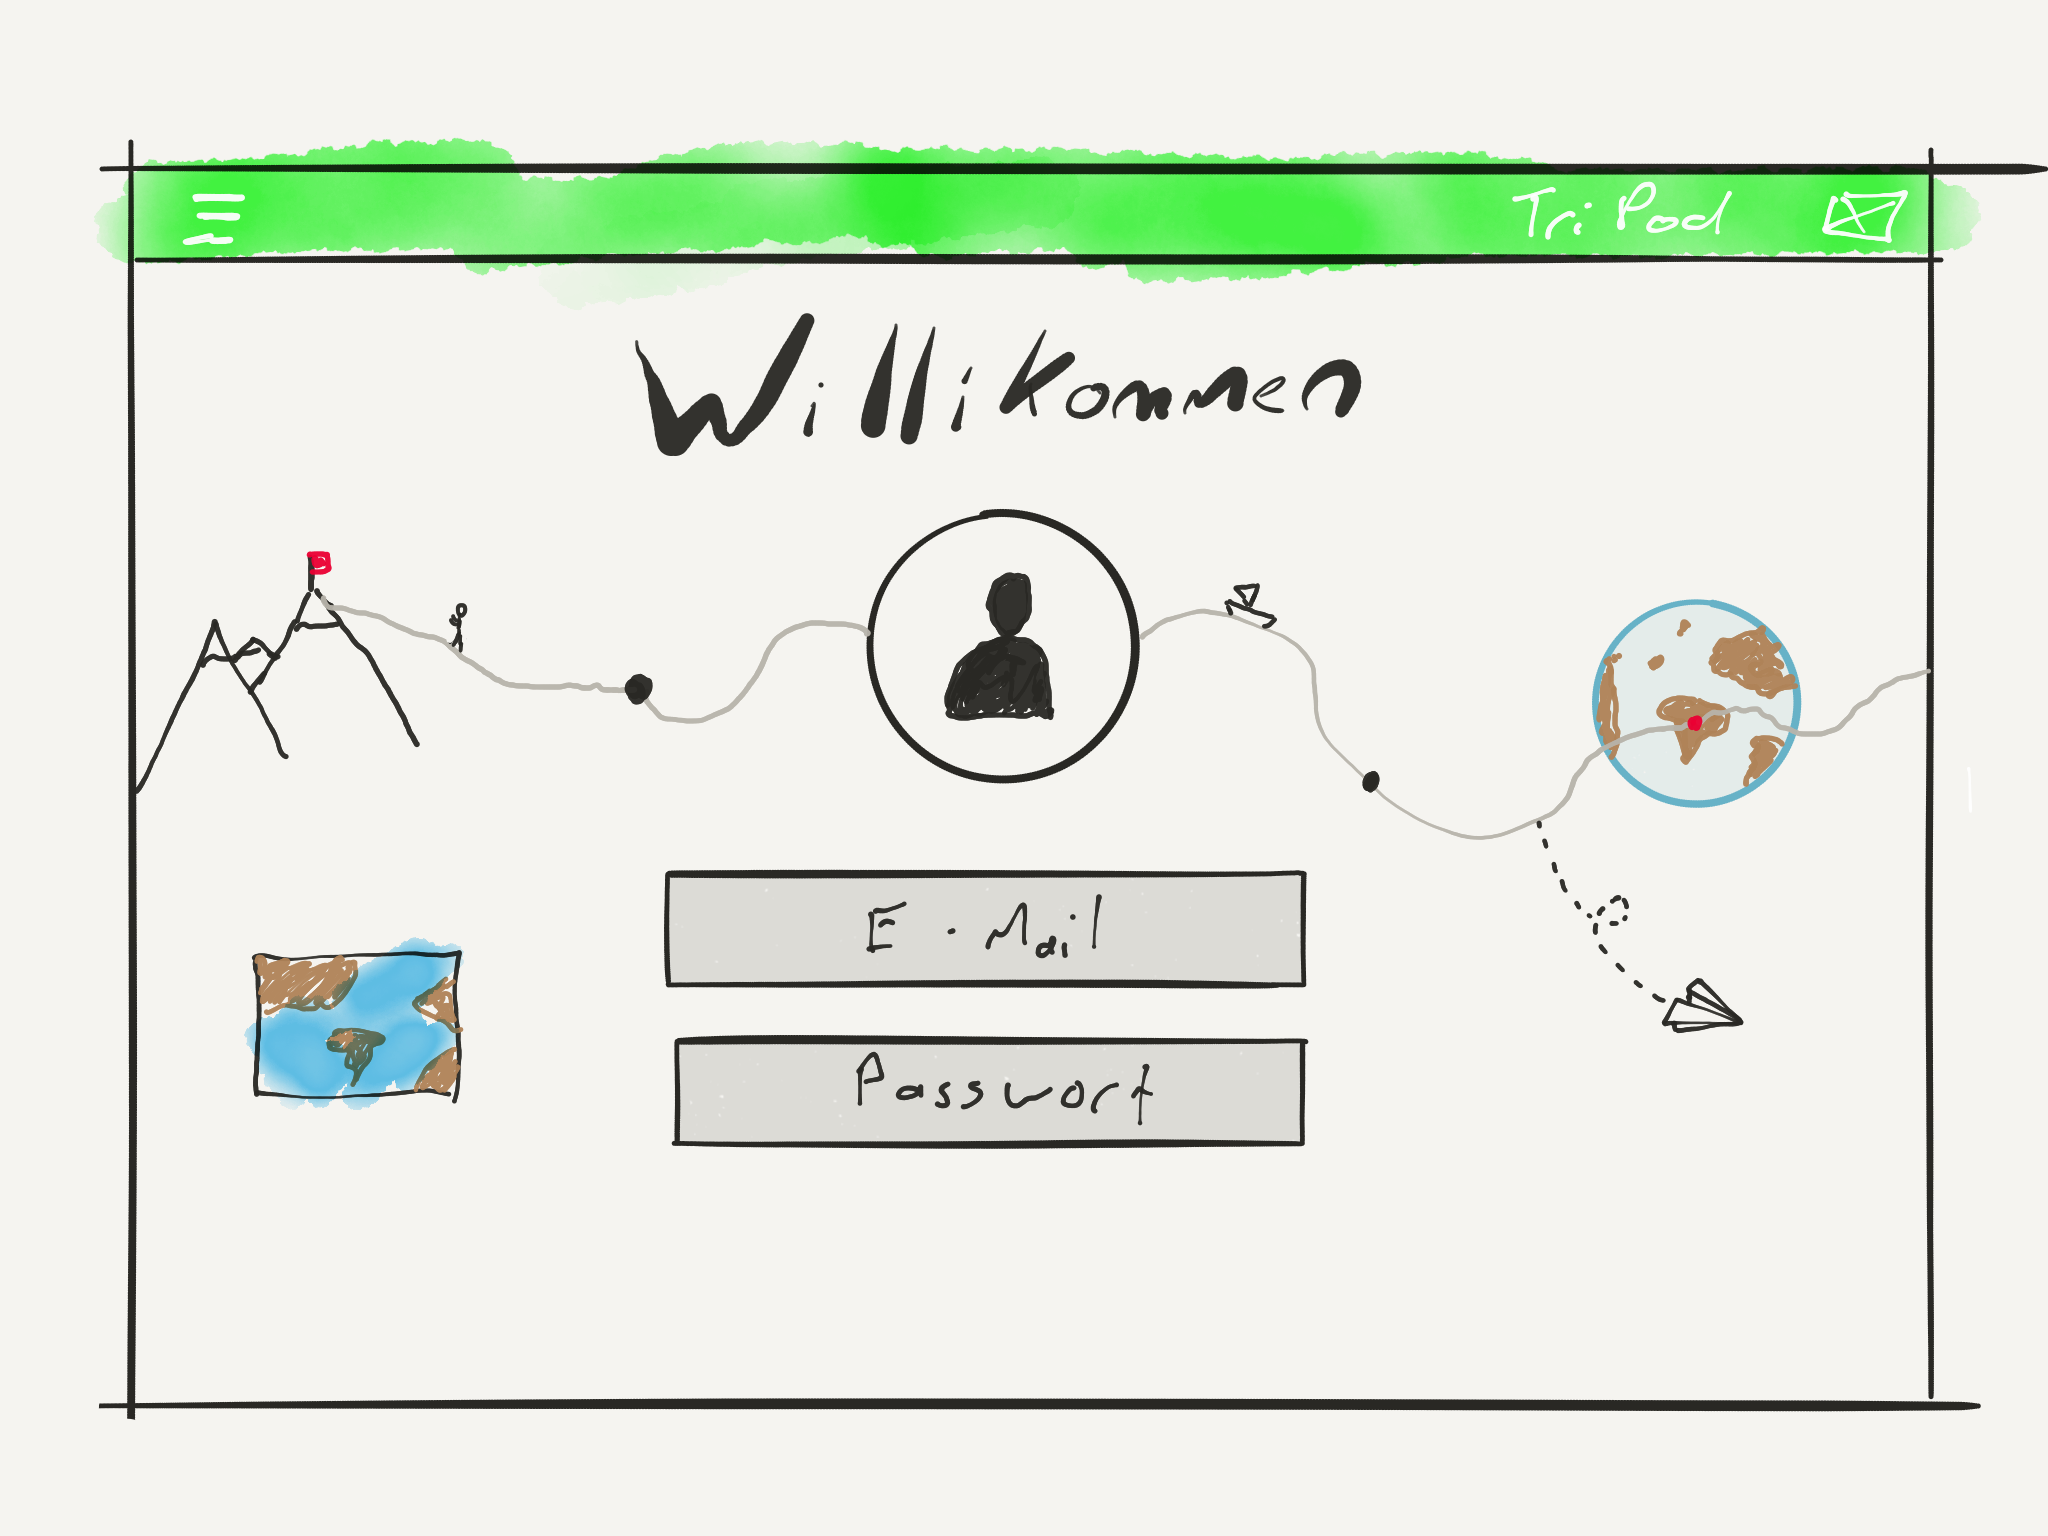 Tri Pod
Willikommen
E-Mail
Passwort